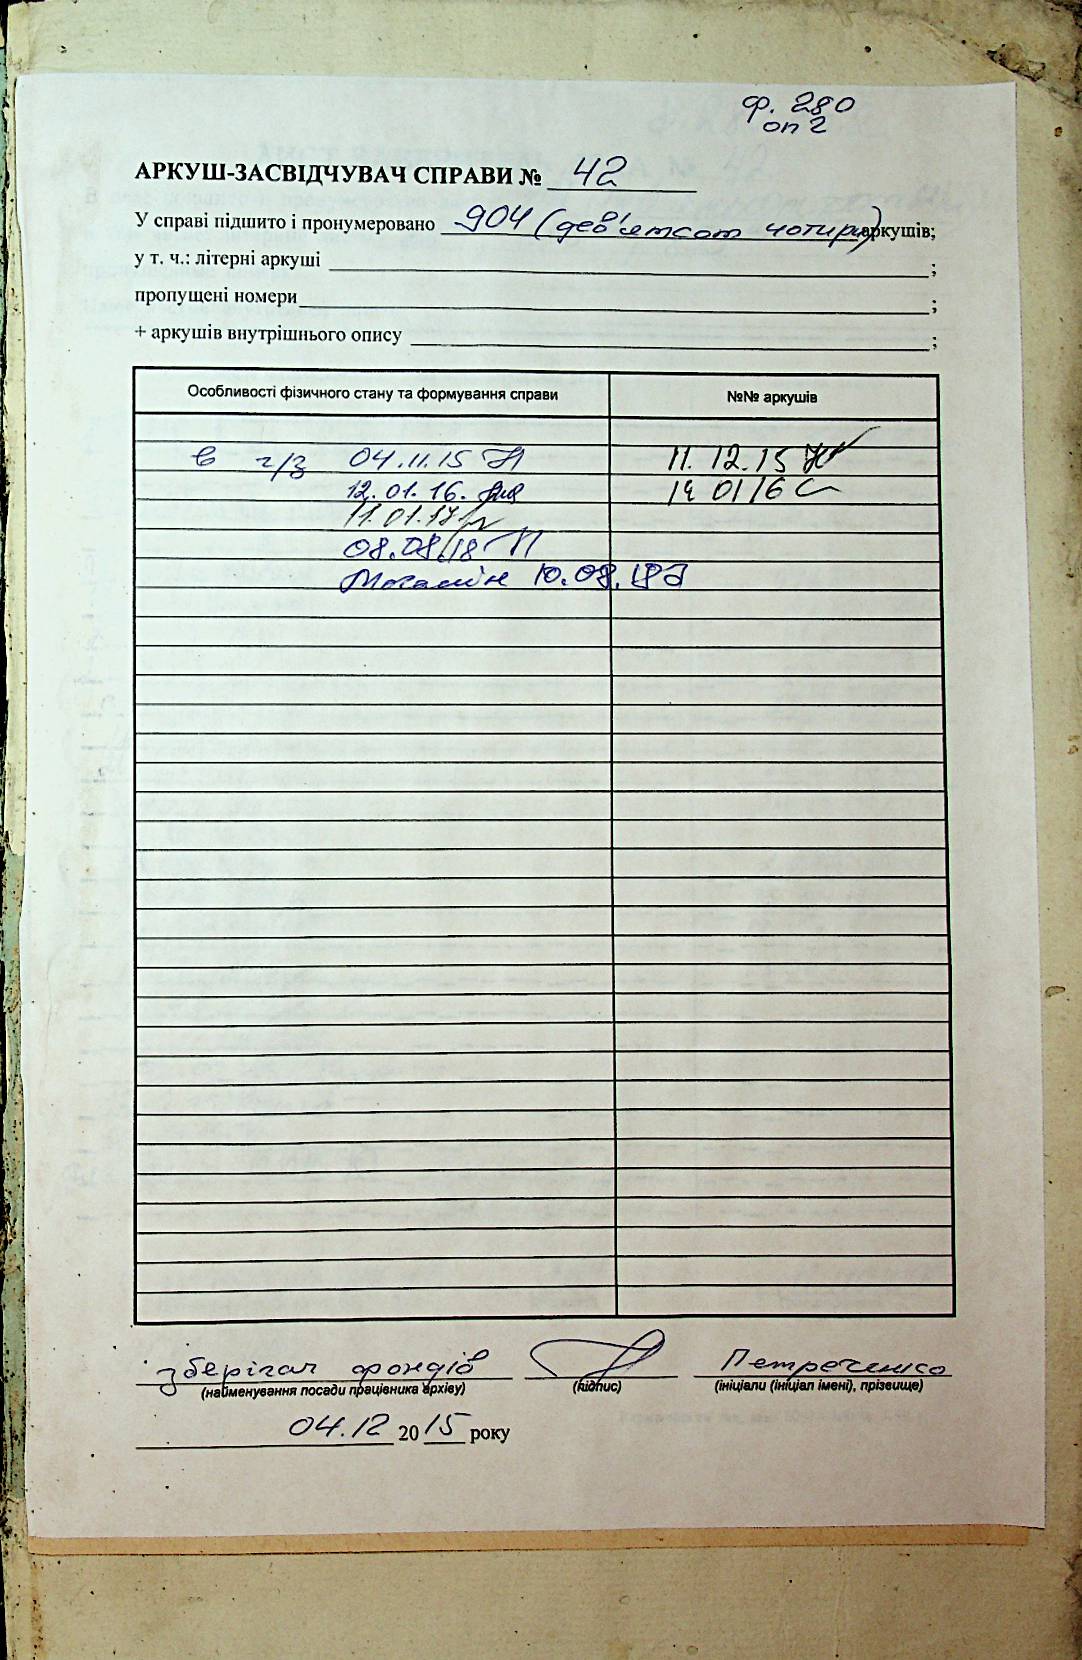 ф. 280
оп 2
АРКУШ-ЗАСВІДЧУВАЧ СПРАВИ № 42
У справі підшито і пронумеровано 904 (дев'ятсот чотири) аркушів;
у т. ч.: літерні аркуші ;
пропущені номери ;
+ аркушів внутрішнього опису ;
Особливості фізичного стану та формування справи №№ аркушів
в ч/з 04.11.15 11.12.15
12.01.16.
11.01.17
08.08.18
10.08.18
зберігач фондів Петреченко
(найменування посади працівника архіву) (підпис) (ініціали (ініціал імені), прізвище)
04.12 2015 року